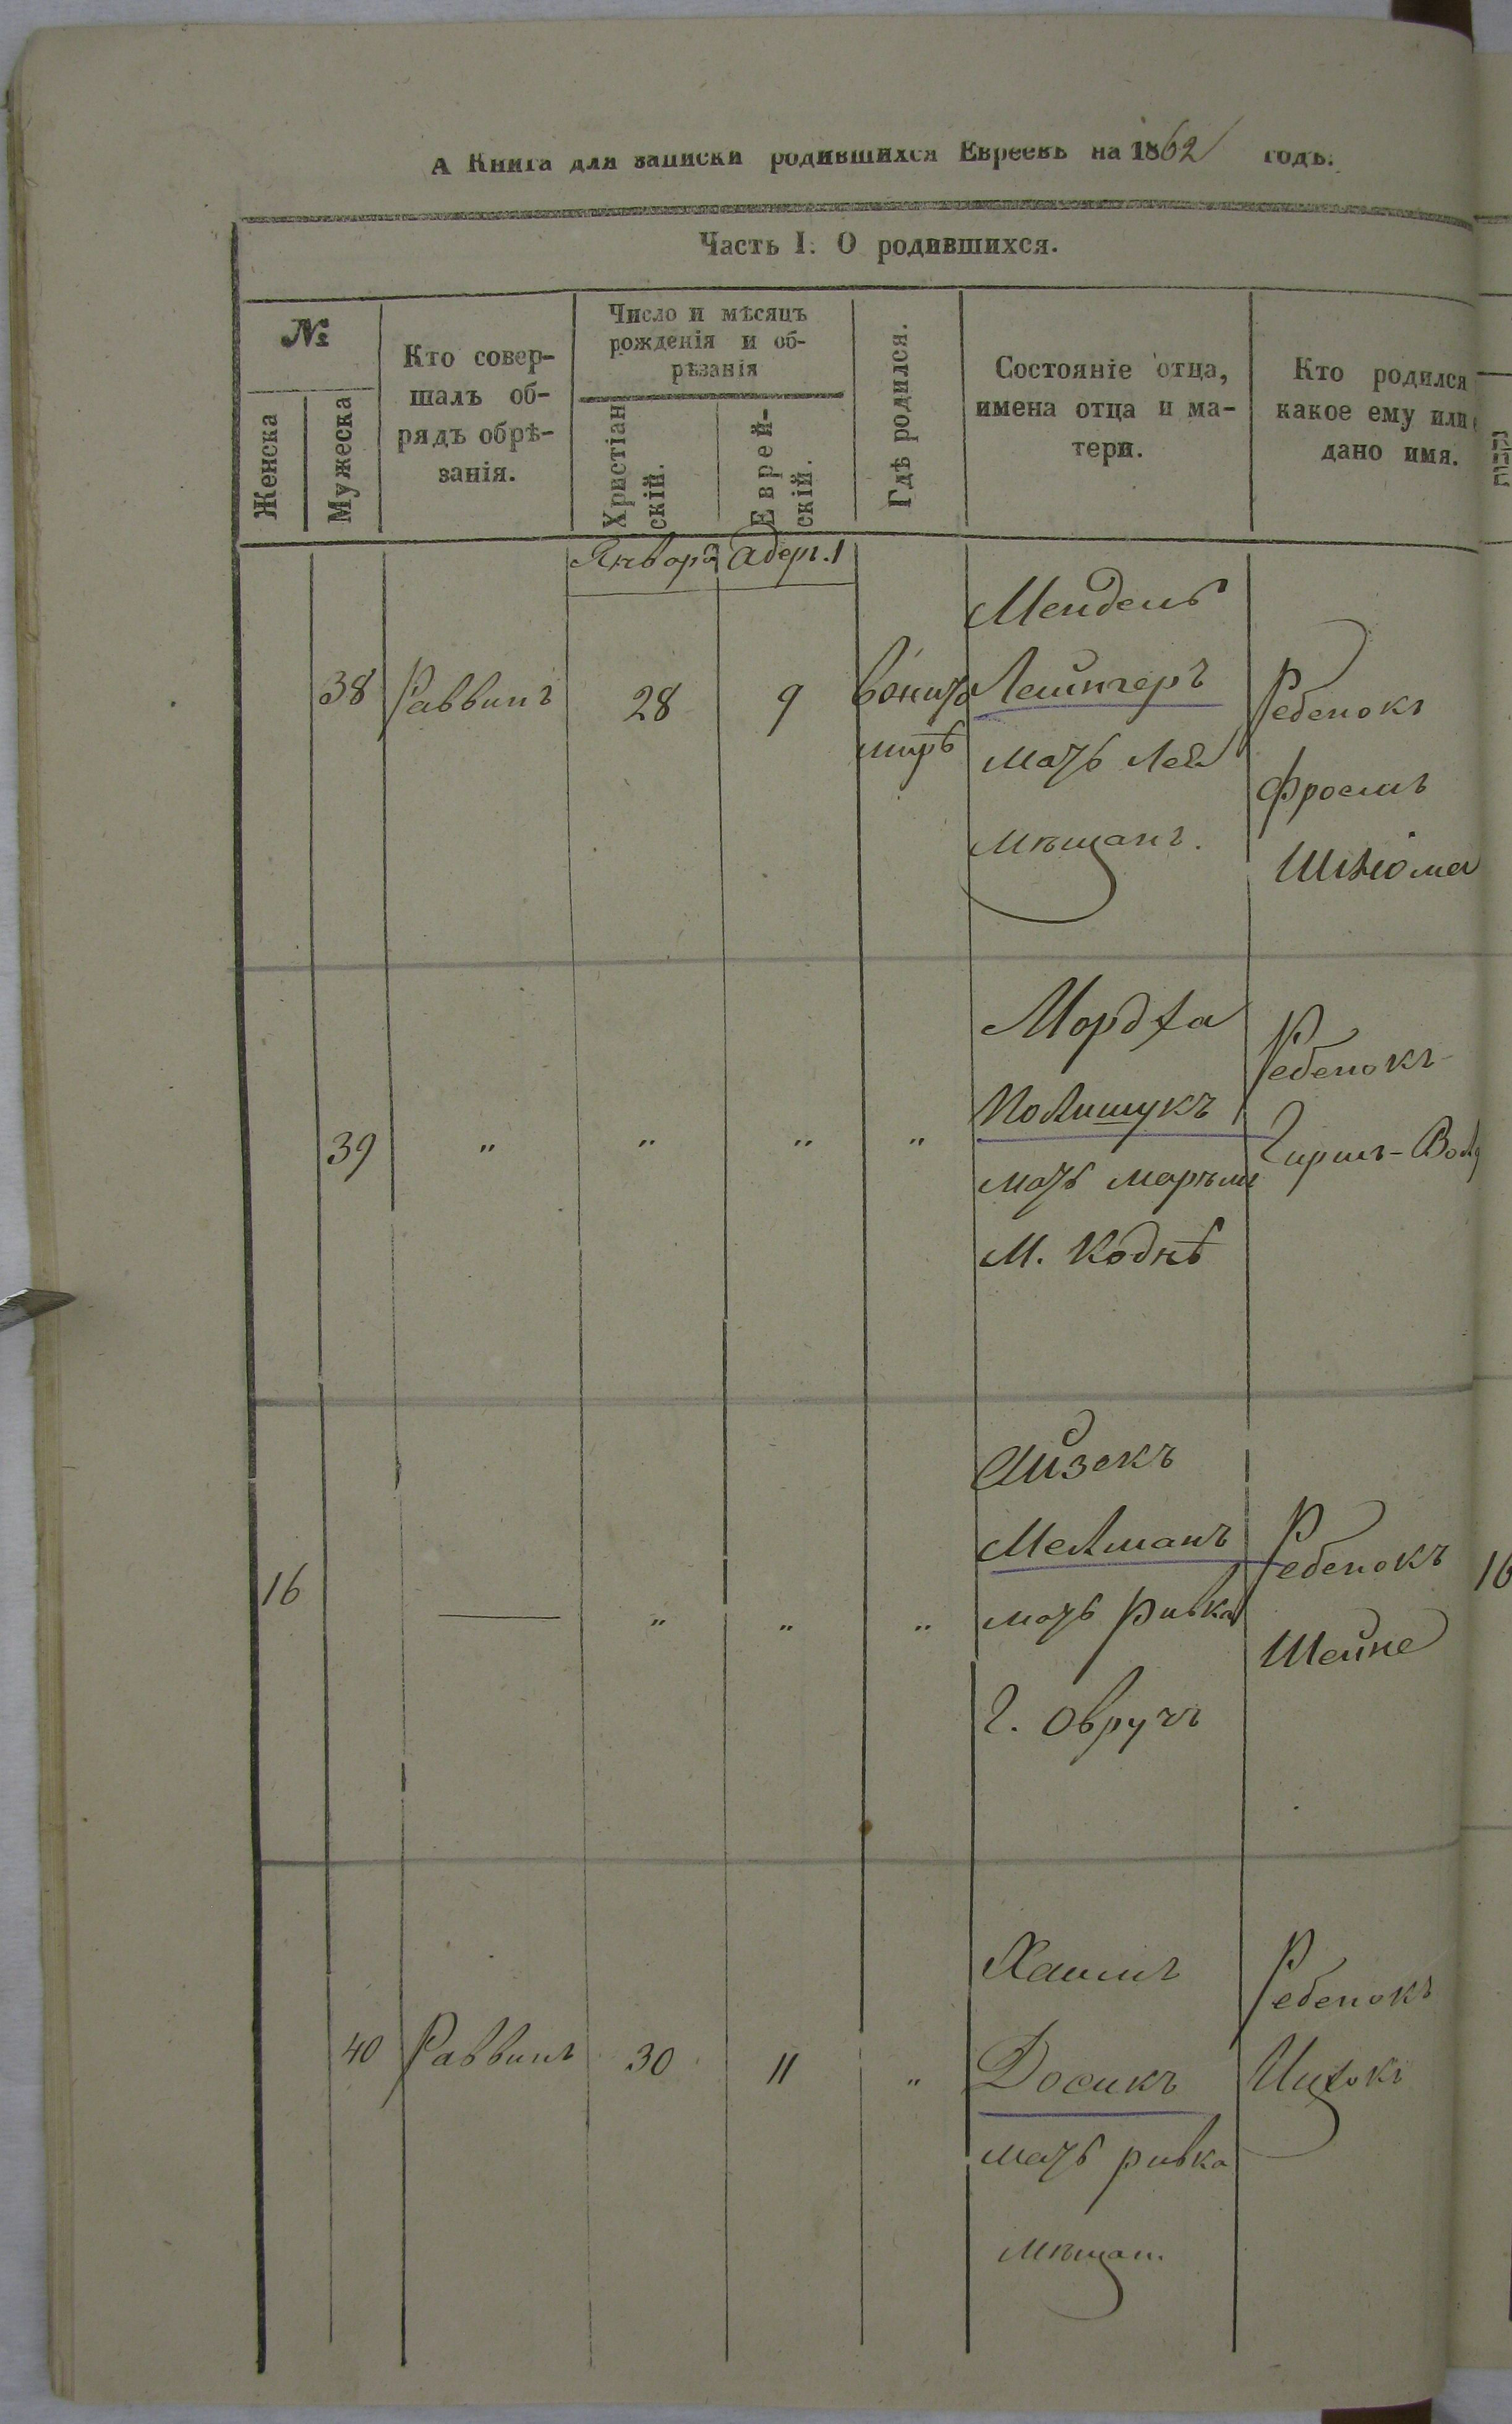 А Книга для записки родившихся Евреевъ на 1862 годъ.
Часть I. О родившихся.
№
Женска
Мужеска
Кто совер-
шалъ об-
рядъ обрѣ-
занія.
Число и мѣсяцъ
рожденія и об-
рѣзанія
Христіан
скій.
Еврей-
скій.
Гдѣ родился.
Состояніе отца,
имена отца и ма-
тери.
Кто родился
какое ему или
дано имя.
Января Адеръ.1
38 Раввинъ 28 9
Мендель
Лейнгеръ
мать Лея
мѣщанъ.
Ребенокъ
Фроимъ
Шлиома
39 " " " "
Мордха
Полищукъ
мать
М. Коднѣ
Ребенокъ
Гиршъ-Вол
16 — " " "
Айзекъ
Мелманъ
мать Ривка
г. Овручъ
Ребенокъ
Шейне
16
40 Раввинъ 30 11 "
Хаимъ
Досикъ
мать ривка
мѣщан.
Ребенокъ
Ицхокъ